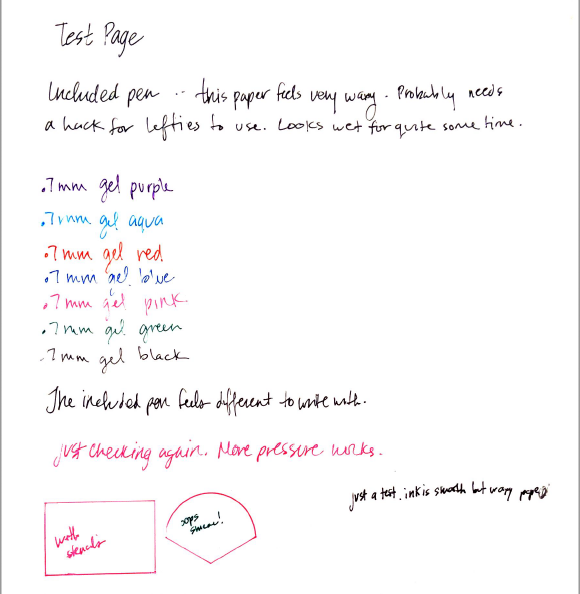 Test Page
Included pen -- this paper feels very waxy. Probably needs
a hack for lefties to use. Looks wet for quite some time.
.7 mm gel purple
.7 mm gel aqua
.7 mm gel red
.7 mm gel blue
.7 mm gel pink
.7 mm gel green
.7 mm gel black
The included pen feels different to write with.
just checking again. More pressure works.
just a test. ink is smooth but waxy paper
oops
smear!
with
stencils